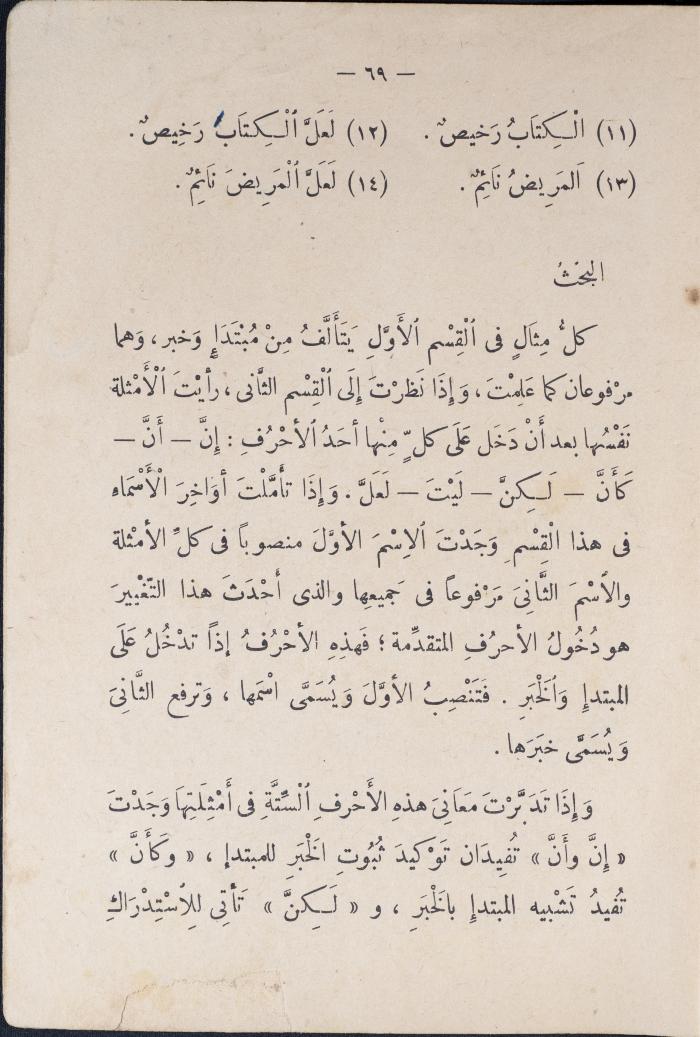 — ٦٩ —
(١١) الْكِتَابُ رَخيصٌ . (١٢) لَعَلَّ ٱلْكِتَابَ رَخِيصٌ .
(١٣) اَلمَرِيضُ نَائِمٌ . (١٤) لَعَلَّ ٱلْمَرِيضَ نَائِمٌ .
البَحْثُ
كلُّ مِثَالٍ فى ٱلْقِسْمِ ٱلْأَوَّلِ يَتَأَلَّفُ مِنْ مُبْتَدَإٍ وَخبر ، وَهما
مرْفوعان كما عَلِمْتَ ، وَإِذَا نَظَرْتَ إِلَى ٱلْقِسْمِ الثَّانى ، رأيْتَ ٱلْأَمْثلة
نَفْسُهَا بعد أَنْ دَخَل عَلَى كلٍّ مِنْها أحَدُ ٱلأحْرُفِ : إِنَّ — أَنَّ —
كَأَنَّ — لَـكِنَّ — لَيْتَ — لَعَلَّ . وَإِذَا تأمَّلْتَ أوَاخِرَ ٱلْأَسْمَاءِ
فى هذا ٱلْقِسْمِ وَجَدْتَ ٱلاِسْمَ الأوَّلَ منصوباً فى كلِّ الأمْثلة
والاسْمَ الثَّانِىَ مَرْفوعاً فى جَمِيعِها والذى أَحْدَثَ هذا التَّغْيِيرَ
هو دُخُولُ الأحرُفِ المتقدِّمة ؛ فَهذِهِ الأحْرُفُ إذاً تدْخُلُ عَلَى
المبتدإِ وَٱلْخَبَرِ . فَتَنْصِبُ الأوَّلَ وَيُسَمَّى اسْمَها ، وَترفع الثَّانِىَ
وَيُسَمَّى خبَرَها .
وَإِذَا تَدَبَّرْتَ مَعَانِىَ هذهِ الأَحْرفِ ٱلْسِّتَّةِ فى أَمْثِلَتِهَا وَجَدْتَ
« إِنَّ وأَنَّ » تُفِيدَان تَوْكيدَ ثُبُوتِ الْخَبَرِ للمبتدإِ ، « وكَأَنَّ »
تُفيدُ تَشْبيه المبتدإِ بالْخَبَرِ ، و « لَـكِنَّ » تَأْتِى لِلاِسْتِدْرَاكِ